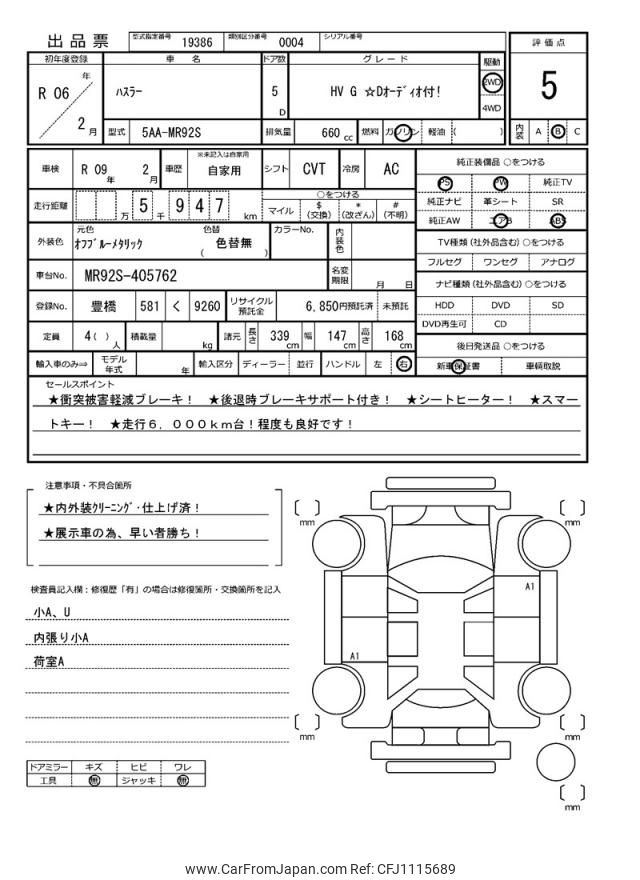 出品票 型式指定番号 19386 類別区分番号 0004 シリアル番号
評価点
5
内装 A B C
初年度登録 車名 ドア数 グレード 駆動
R 06 年 2 月
ハスラー 5 D HV G ☆Dオーディオ付! 2WD
4WD
型式 5AA-MR92S 排気量 660 cc 燃料 ガソリン 軽油 ( )
車検 R 09 年 2 月 車歴 ※未記入は自家用 自家用 シフト CVT 冷房 AC
走行距離 万 5 千 9 4 7 km ○をつける
マイル $ (交換) * (改ざん) # (不明)
外装色 元色 オフブルーメタリック 色替 ( 色替無 ) カラーNo. 内装色
車台No. MR92S-405762 名変期限 月 日
登録No. 豊橋 581 く 9260 リサイクル預託金 6,850円預託済 未預託
定員 4( ) 人 積載量 kg 諸元 長さ 339 cm 幅 147 cm 高さ 168 cm
輸入車のみ⇒ モデル年式 年 輸入区分 ディーラー 並行 ハンドル 左 右
純正装備品 ○をつける
PS PW 純正TV
純正ナビ 革シート SR
純正AW エアB ABS
TV種類(社外品含む) ○をつける
フルセグ ワンセグ アナログ
ナビ種類(社外品含む) ○をつける
HDD DVD SD
DVD再生可 CD
後日発送品 ○をつける
新車保証書 車輌取説
セールスポイント
★衝突被害軽減ブレーキ! ★後退時ブレーキサポート付き! ★シートヒーター! ★スマー
トキー! ★走行6,000km台!程度も良好です!
注意事項・不具合箇所
★内外装クリーニング・仕上げ済!
★展示車の為、早い者勝ち!
検査員記入欄:修復歴「有」の場合は修復箇所・交換箇所を記入
小A、U
内張り小A
荷室A
ドアミラー キズ ヒビ ワレ
工具 無 ジャッキ 無
mm
mm
A1
A1
mm
mm
mm
www.CarFromJapan.com Ref: CFJ1115689